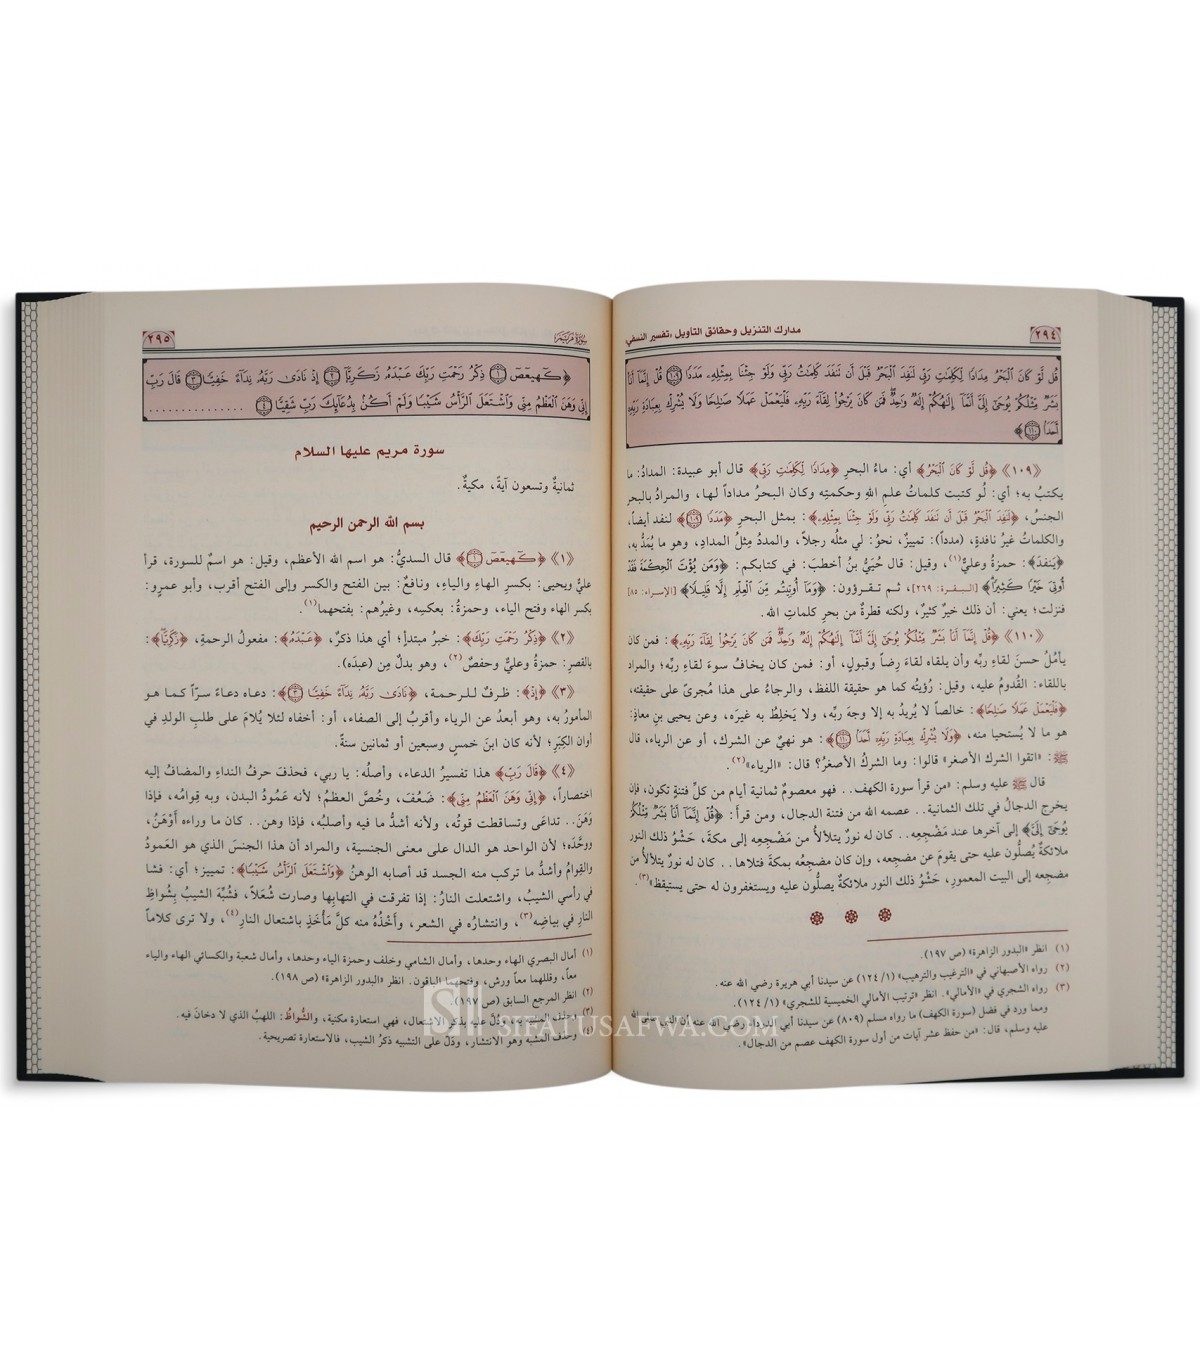 ٢٩٤
مدارك التنزيل وحقائق التأويل «تفسير النسفي»
قُل لَّوْ كَانَ ٱلْبَحْرُ مِدَادًا لِّكَلِمَٰتِ رَبِّى لَنَفِدَ ٱلْبَحْرُ قَبْلَ أَن تَنفَدَ كَلِمَٰتُ رَبِّى وَلَوْ جِئْنَا بِمِثْلِهِۦ مَدَدًا ١٠٩ قُلْ إِنَّمَآ أَنَا۠
بَشَرٌ مِّثْلُكُمْ يُوحَىٰٓ إِلَىَّ أَنَّمَآ إِلَٰهُكُمْ إِلَٰهٌ وَٰحِدٌ فَمَن كَانَ يَرْجُوا۟ لِقَآءَ رَبِّهِۦ فَلْيَعْمَلْ عَمَلًا صَٰلِحًا وَلَا يُشْرِكْ بِعِبَادَةِ رَبِّهِۦٓ
أَحَدًۢا ١١٠﴾
《١٠٩》 ﴿قُل لَّوْ كَانَ ٱلْبَحْرُ﴾ أي: ماءُ البحرِ ﴿مِدَادًا لِّكَلِمَٰتِ رَبِّى﴾ قال أبو عبيدة: المدادُ: ما
يكتبُ به؛ أي: لَو كتبت كلماتُ علمِ اللهِ وحكمتِه وكان البحرُ مداداً لها، والمرادُ بالبحرِ
الجنسُ، ﴿لَنَفِدَ ٱلْبَحْرُ قَبْلَ أَن تَنفَدَ كَلِمَٰتُ رَبِّى وَلَوْ جِئْنَا بِمِثْلِهِۦ﴾: بمثل البحرِ ﴿مَدَدًا ١٠٩﴾ لنفد أيضاً،
والكلماتُ غيرُ نافدةٍ، (مدداً): تمييزٌ، نحوُ: لي مثلُه رجلاً، والمددُ مِثلُ المدادِ، وهو ما يُمَدُّ به،
﴿يَنفَدَ﴾: حمزةُ وعليٌّ(١)، وقيل: قال حُيَيُّ بنُ أخطبَ: في كتابكم: ﴿وَمَن يُؤْتَ ٱلْحِكْمَةَ فَقَدْ
أُوتِىَ خَيْرًا كَثِيرًا﴾ [البقرة: ٢٦٩]، ثم تقرؤون: ﴿وَمَآ أُوتِيتُم مِّنَ ٱلْعِلْمِ إِلَّا قَلِيلًا﴾ [الإسراء: ٨٥]
فنزلت؛ يعني: أن ذلك خيرٌ كثيرٌ، ولكنه قطرةٌ من بحرِ كلماتِ الله.
《١١٠》 ﴿قُلْ إِنَّمَآ أَنَا۠ بَشَرٌ مِّثْلُكُمْ يُوحَىٰٓ إِلَىَّ أَنَّمَآ إِلَٰهُكُمْ إِلَٰهٌ وَٰحِدٌ فَمَن كَانَ يَرْجُوا۟ لِقَآءَ رَبِّهِۦ﴾: فمن كان
يأمُلُ حسنَ لقاءِ ربِّه وأن يلقاه لقاءَ رضاً وقبولٍ، أو: فمن كان يخافُ سوءَ لقاءِ ربِّه؛ والمراد
باللقاء: القُدومُ عليه، وقيل: رُؤيتُه كما هو حقيقة اللفظ، والرجاءُ على هذا مُجرىً على حقيقته،
﴿فَلْيَعْمَلْ عَمَلًا صَٰلِحًا﴾: خالصاً لا يُريدُ به إلا وجهَ ربِّه، ولا يَخلِطُ به غيرَه، وعن يحيى بنِ معاذٍ:
هو ما لا يُستحيا منه، ﴿وَلَا يُشْرِكْ بِعِبَادَةِ رَبِّهِۦٓ أَحَدًۢا ١١٠﴾: هو نهيٌ عن الشرك، أو عن الرياء، قال
ﷺ: «اتقوا الشرك الأصغر» قالوا: وما الشركُ الأصغرُ؟ قال: «الرياء»(٢).
قال ﷺ عليه وسلم: «من قرأ سورة الكهف.. فهو معصومٌ ثمانية أيام من كلِّ فتنةٍ تكون، فإن
يخرج الدجالُ في تلك الثمانية.. عصمه الله من فتنة الدجال، ومن قرأ: ﴿قُلْ إِنَّمَآ أَنَا۠ بَشَرٌ مِّثْلُكُمْ
يُوحَىٰٓ إِلَىَّ﴾ إلى آخرها عند مَضْجعِه.. كان له نورٌ يتلألأُ من مَضْجعِه إلى مكةَ، حَشْوُ ذلك النور
ملائكةٌ يُصلُّون عليه حتى يقومَ عن مضجعِه، وإن كان مضجعُه بمكة فتلاها.. كان له نورٌ يتلألأ من
مضجعِه إلى البيت المعمورِ، حَشْوُ ذلك النور ملائكةٌ يصلُّون عليه ويستغفرون له حتى يستيقظَ»(٣).
(١) انظر «البدور الزاهرة» (ص ١٩٧).
(٢) رواه الأصبهاني في «الترغيب والترهيب» (١/ ١٢٤) عن سيدنا أبي هريرة رضي الله عنه.
(٣) رواه الشجري في «الأمالي». انظر «ترتيب الأمالي الخميسية للشجري» (١/ ١٢٤).
ومما ورد في فضل (سورة الكهف) ما رواه مسلم (٨٠٩) عن سيدنا أبي الدرداء رضي الله عنه أن النبي صلى الله
عليه وسلم، قال: «من حفظ عشر آيات من أول سورة الكهف عصم من الدجال».
سُورَةُ مَرْيَمَ
٢٩٥
﴿كٓهيعٓصٓ ١ ذِكْرُ رَحْمَتِ رَبِّكَ عَبْدَهُۥ زَكَرِيَّآ ٢ إِذْ نَادَىٰ رَبَّهُۥ نِدَآءً خَفِيًّا ٣ قَالَ رَبِّ
إِنِّى وَهَنَ ٱلْعَظْمُ مِنِّى وَٱشْتَعَلَ ٱلرَّأْسُ شَيْبًا وَلَمْ أَكُنۢ بِدُعَآئِكَ رَبِّ شَقِيًّا ٤ ...............
سورة مريم عليها السلام
ثمانيةٌ وتسعون آيةً، مكيةٌ.
بسم الله الرحمن الرحيم
《١》 ﴿كٓهيعٓصٓ ١﴾ قال السديُّ: هو اسم الله الأعظم، وقيل: هو اسمٌ للسورة، قرأ
عليٌّ ويحيى: بكسرِ الهاءِ والياءِ، ونافعٌ: بين الفتح والكسر وإلى الفتح أقرب، وأبو عمرٍو:
بكسر الهاء وفتح الياء، وحمزةُ: بعكسِه، وغيرُهم: بفتحهما(١).
《٢》 ﴿ذِكْرُ رَحْمَتِ رَبِّكَ﴾: خبرُ مبتدأٍ؛ أي هذا ذكرُ، ﴿عَبْدَهُۥ﴾: مفعولُ الرحمةِ، ﴿زَكَرِيَّآ﴾:
بالقصرِ: حمزةُ وعليٌّ وحفصٌ(٢)، وهو بدلٌ مِن (عبدَه).
《٣》 ﴿إِذْ﴾: ظرفٌ للرحمة، ﴿نَادَىٰ رَبَّهُۥ نِدَآءً خَفِيًّا ٣﴾: دعاه دعاءً سرّاً كما هو
المأمورُ به، وهو أبعدُ عن الرياء وأقربُ إلى الصفاء، أو: أخفاه لئلا يُلامَ على طلبِ الولد في
أوان الكِبَرِ؛ لأنه كان ابنَ خمسٍ وسبعين أو ثمانين سنةً.
《٤》 ﴿قَالَ رَبِّ﴾ هذا تفسيرُ الدعاء، وأصلُه: يا ربي، فحذف حرفُ النداءِ والمضافُ إليه
اختصاراً، ﴿إِنِّى وَهَنَ ٱلْعَظْمُ مِنِّى﴾: ضَعُفَ، وخُصَّ العظمُ؛ لأنه عَمُودُ البدن، وبه قِوامُه، فإذا
وَهَنَ.. تداعَى وتساقطت قوتُه، ولأنه أشدُّ ما فيه وأصلبُه، فإذا وهن.. كان ما وراءه أوْهَنُ،
ووحَّدَه؛ لأن الواحد هو الدال على معنى الجنسية، والمراد أن هذا الجنسَ الذي هو العَمودُ
والقِوامُ وأشدُّ ما تركب منه الجسد قد أصابه الوهنُ ﴿وَٱشْتَعَلَ ٱلرَّأْسُ شَيْبًا﴾: تمييز؛ أي: فشا
في رأسي الشيبُ، واشتعلت النارُ: إذا تفرقت في التهابِها وصارت شُعَلاً، فشُبِّهَ الشيبُ بِشُواظِ
النارِ في بياضِه(٣)، وانتشارُه في الشعر، وأَخْذُه منه كلَّ مَأْخَذٍ باشتعالِ النارِ(٤)، ولا ترى كلاماً
(١) أمال البصري الهاء وحدها، وأمال الشامي وخلف وحمزة الياء وحدها، وأمال شعبة والكسائي الهاء والياء
معاً، وقللهما معاً ورش، وفتحهما الباقون. انظر «البدور الزاهرة» (ص ١٩٨).
(٢) انظر المرجع السابق (ص ١٩٧).
(٣) وحذف المشبه به، ودُلَّ عليه بذكر الاشتعال، فهي استعارة مكنية، والشُّواظُ: اللهبُ الذي لا دخانَ فيه.
(٤) وحذف المشبه وهو الانتشار، ودُلَّ على التشبيه ذكرُ الشيب، فالاستعارة تصريحية.
SIFATUSAFWA.COM